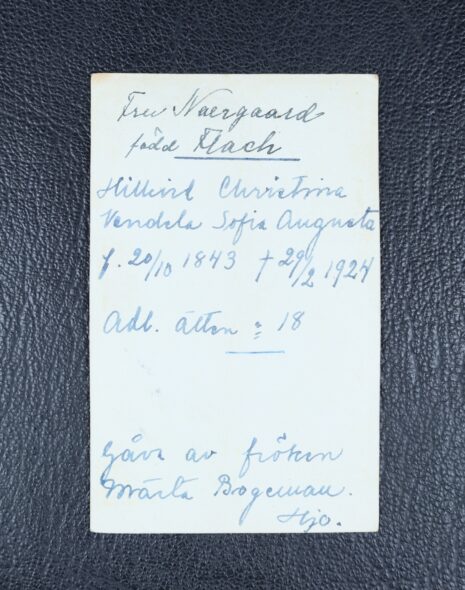 Fru Naergaard
född Flach
Christina
Vendela Sofia Augusta
f. 20/10 1843 † 29/2 1924
Adl. ätten : 18
Gåva av fröken
Märta Bogeman.
Hjo.